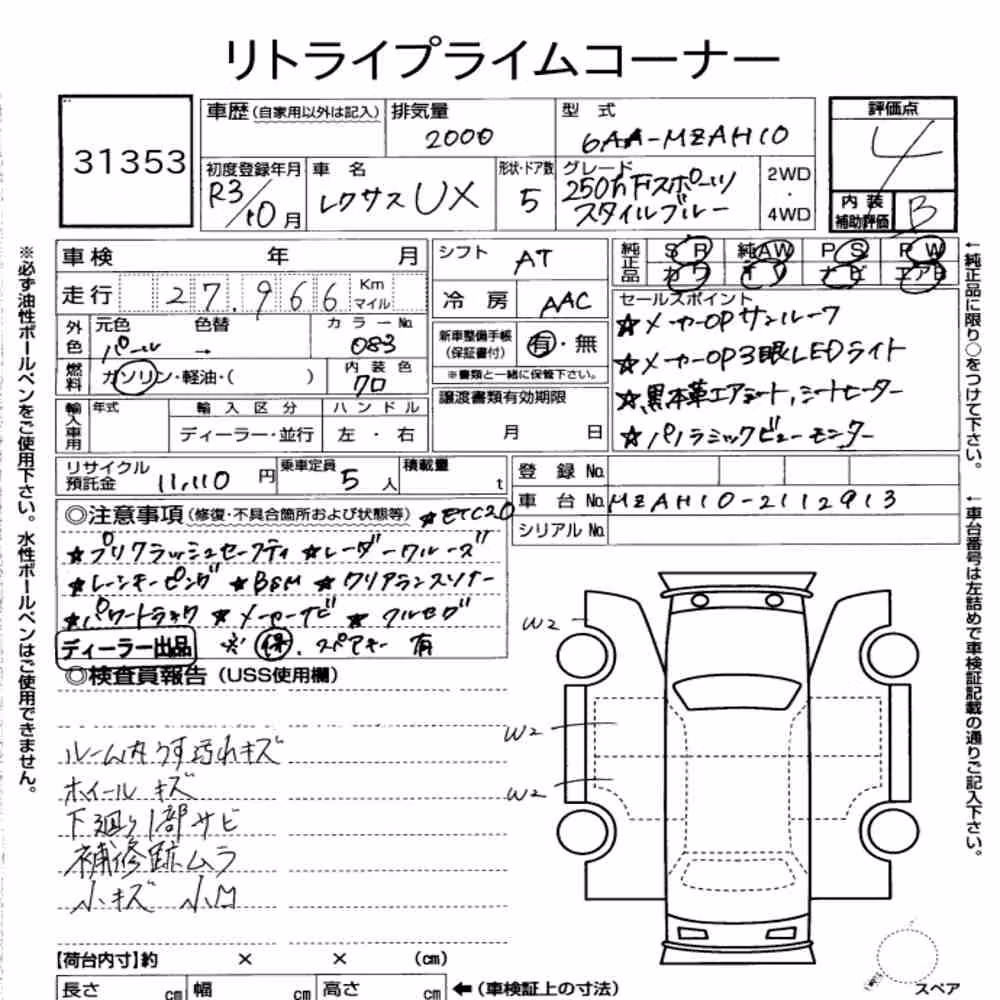 リトライプライムコーナー
31353
車歴(自家用以外は記入)
排気量
2000
型 式
6AA-MZAH10
評価点
4
初度登録年月
R3/10月
車 名
レクサス UX
形状・ドア数
5
グレード
250h Fスポーツ
スタイルブルー
2WD
・
4WD
内 装
補助評価
B
車検 年 月
走行 27.966 Km
マイル
シフト
AT
純正品
SR 純AW PS PW
カワ ナビ エアB
外色
元色 色替
パール →
カラーNo.
083
冷 房
AAC
セールスポイント
☆メーカーOPサンルーフ
☆メーカーOP3眼LEDライト
☆黒本革エアシート,シートヒーター
☆パノラミックビューモニター
燃料
ガソリン・軽油・( )
内 装 色
黒
新車整備手帳
(保証書付)
有・無
※書類と一緒に保管下さい。
輸入車用
年式
輸 入 区 分
ディーラー・並行
ハ ン ド ル
左 ・ 右
譲渡書類有効期限
月 日
リサイクル
預託金
11,110 円
乗車定員
5人
積載量
t
登 録 No.
車 台 No. MZAH10-2112913
シリアル No.
◎注意事項(修復・不具合箇所および状態等) ☆ETC2.0
☆プリクラッシュセーフティ ☆レーダークルーズ
☆レーンキーピング ☆BSM ☆クリアランスソナー
☆パワートランク ☆メーカーナビ ☆フルセグ
ディーラー出品 ※ 保. スペアキー 有
◎検査員報告(USS使用欄)
ルーム内うす汚れキズ
ホイールキズ
下廻り1部サビ
補修跡ムラ
小キズ 小凹
W2
W2
W2
【荷台内寸】約 × × (cm)
長さ cm 幅 cm 高さ cm ←(車検証上の寸法)
スペア
※必ず油性ボールペンをご使用下さい。水性ボールペンはご使用できません。
←純正品に限り○をつけて下さい。
←車台番号は左詰めで車検証記載の通りご記入下さい。